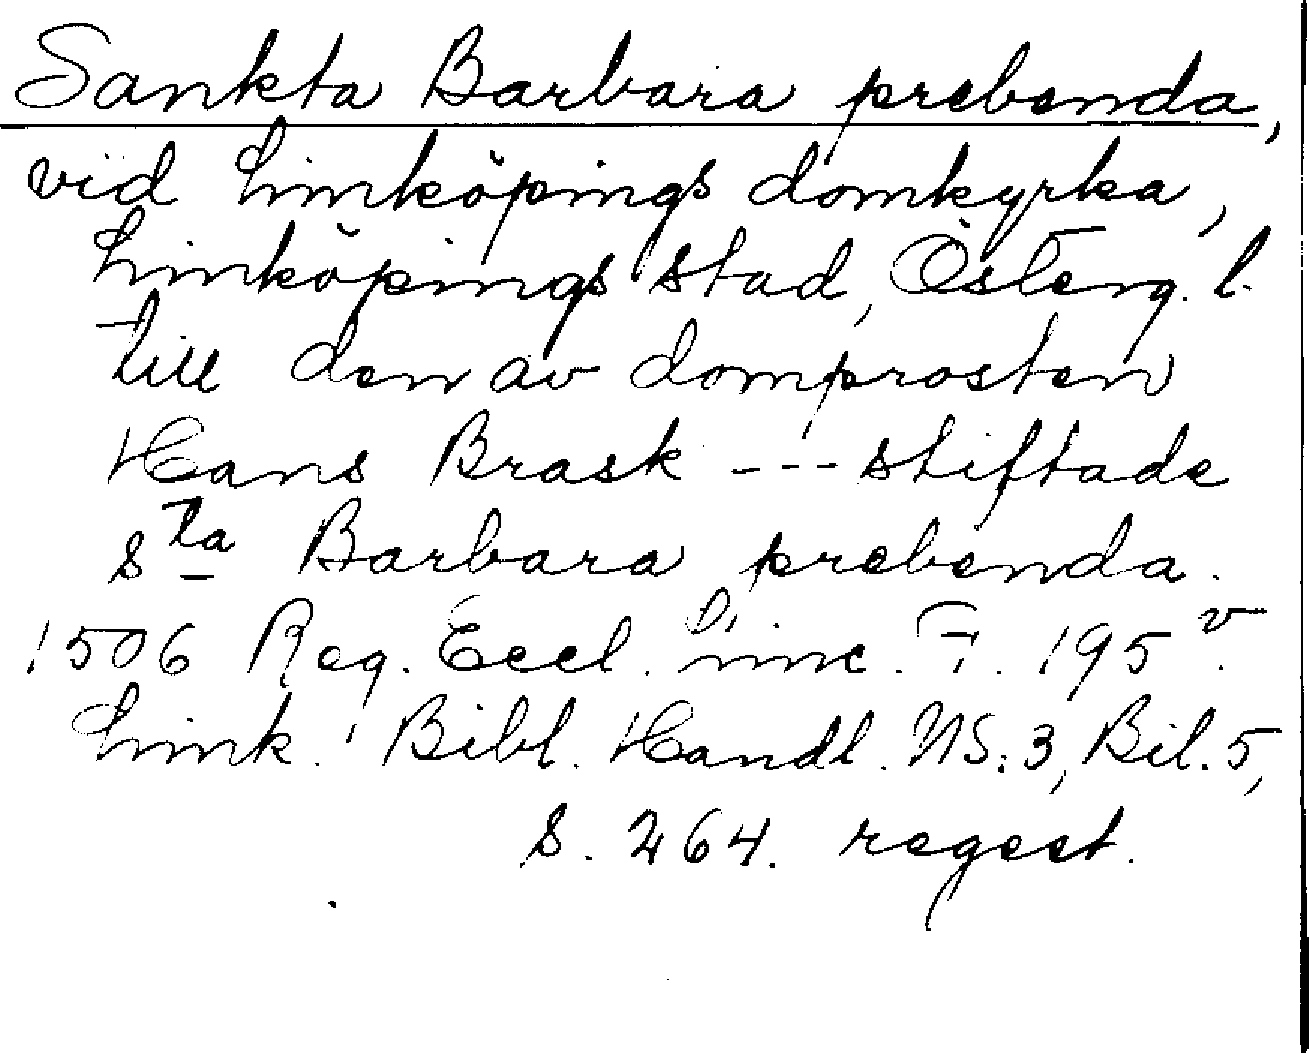 Sankta Barbara prebenda,
vid Linköpings domkyrka,
Linköpings stad, Österg. l.
till den av domprosten
Hans Brask --- stiftade
s:ta Barbara prebenda.
1506 Reg. Eccl. Linc. F. 195 v.
Link. Bibl. Handl. NS: 3, Bil. 5,
s. 264. regest.